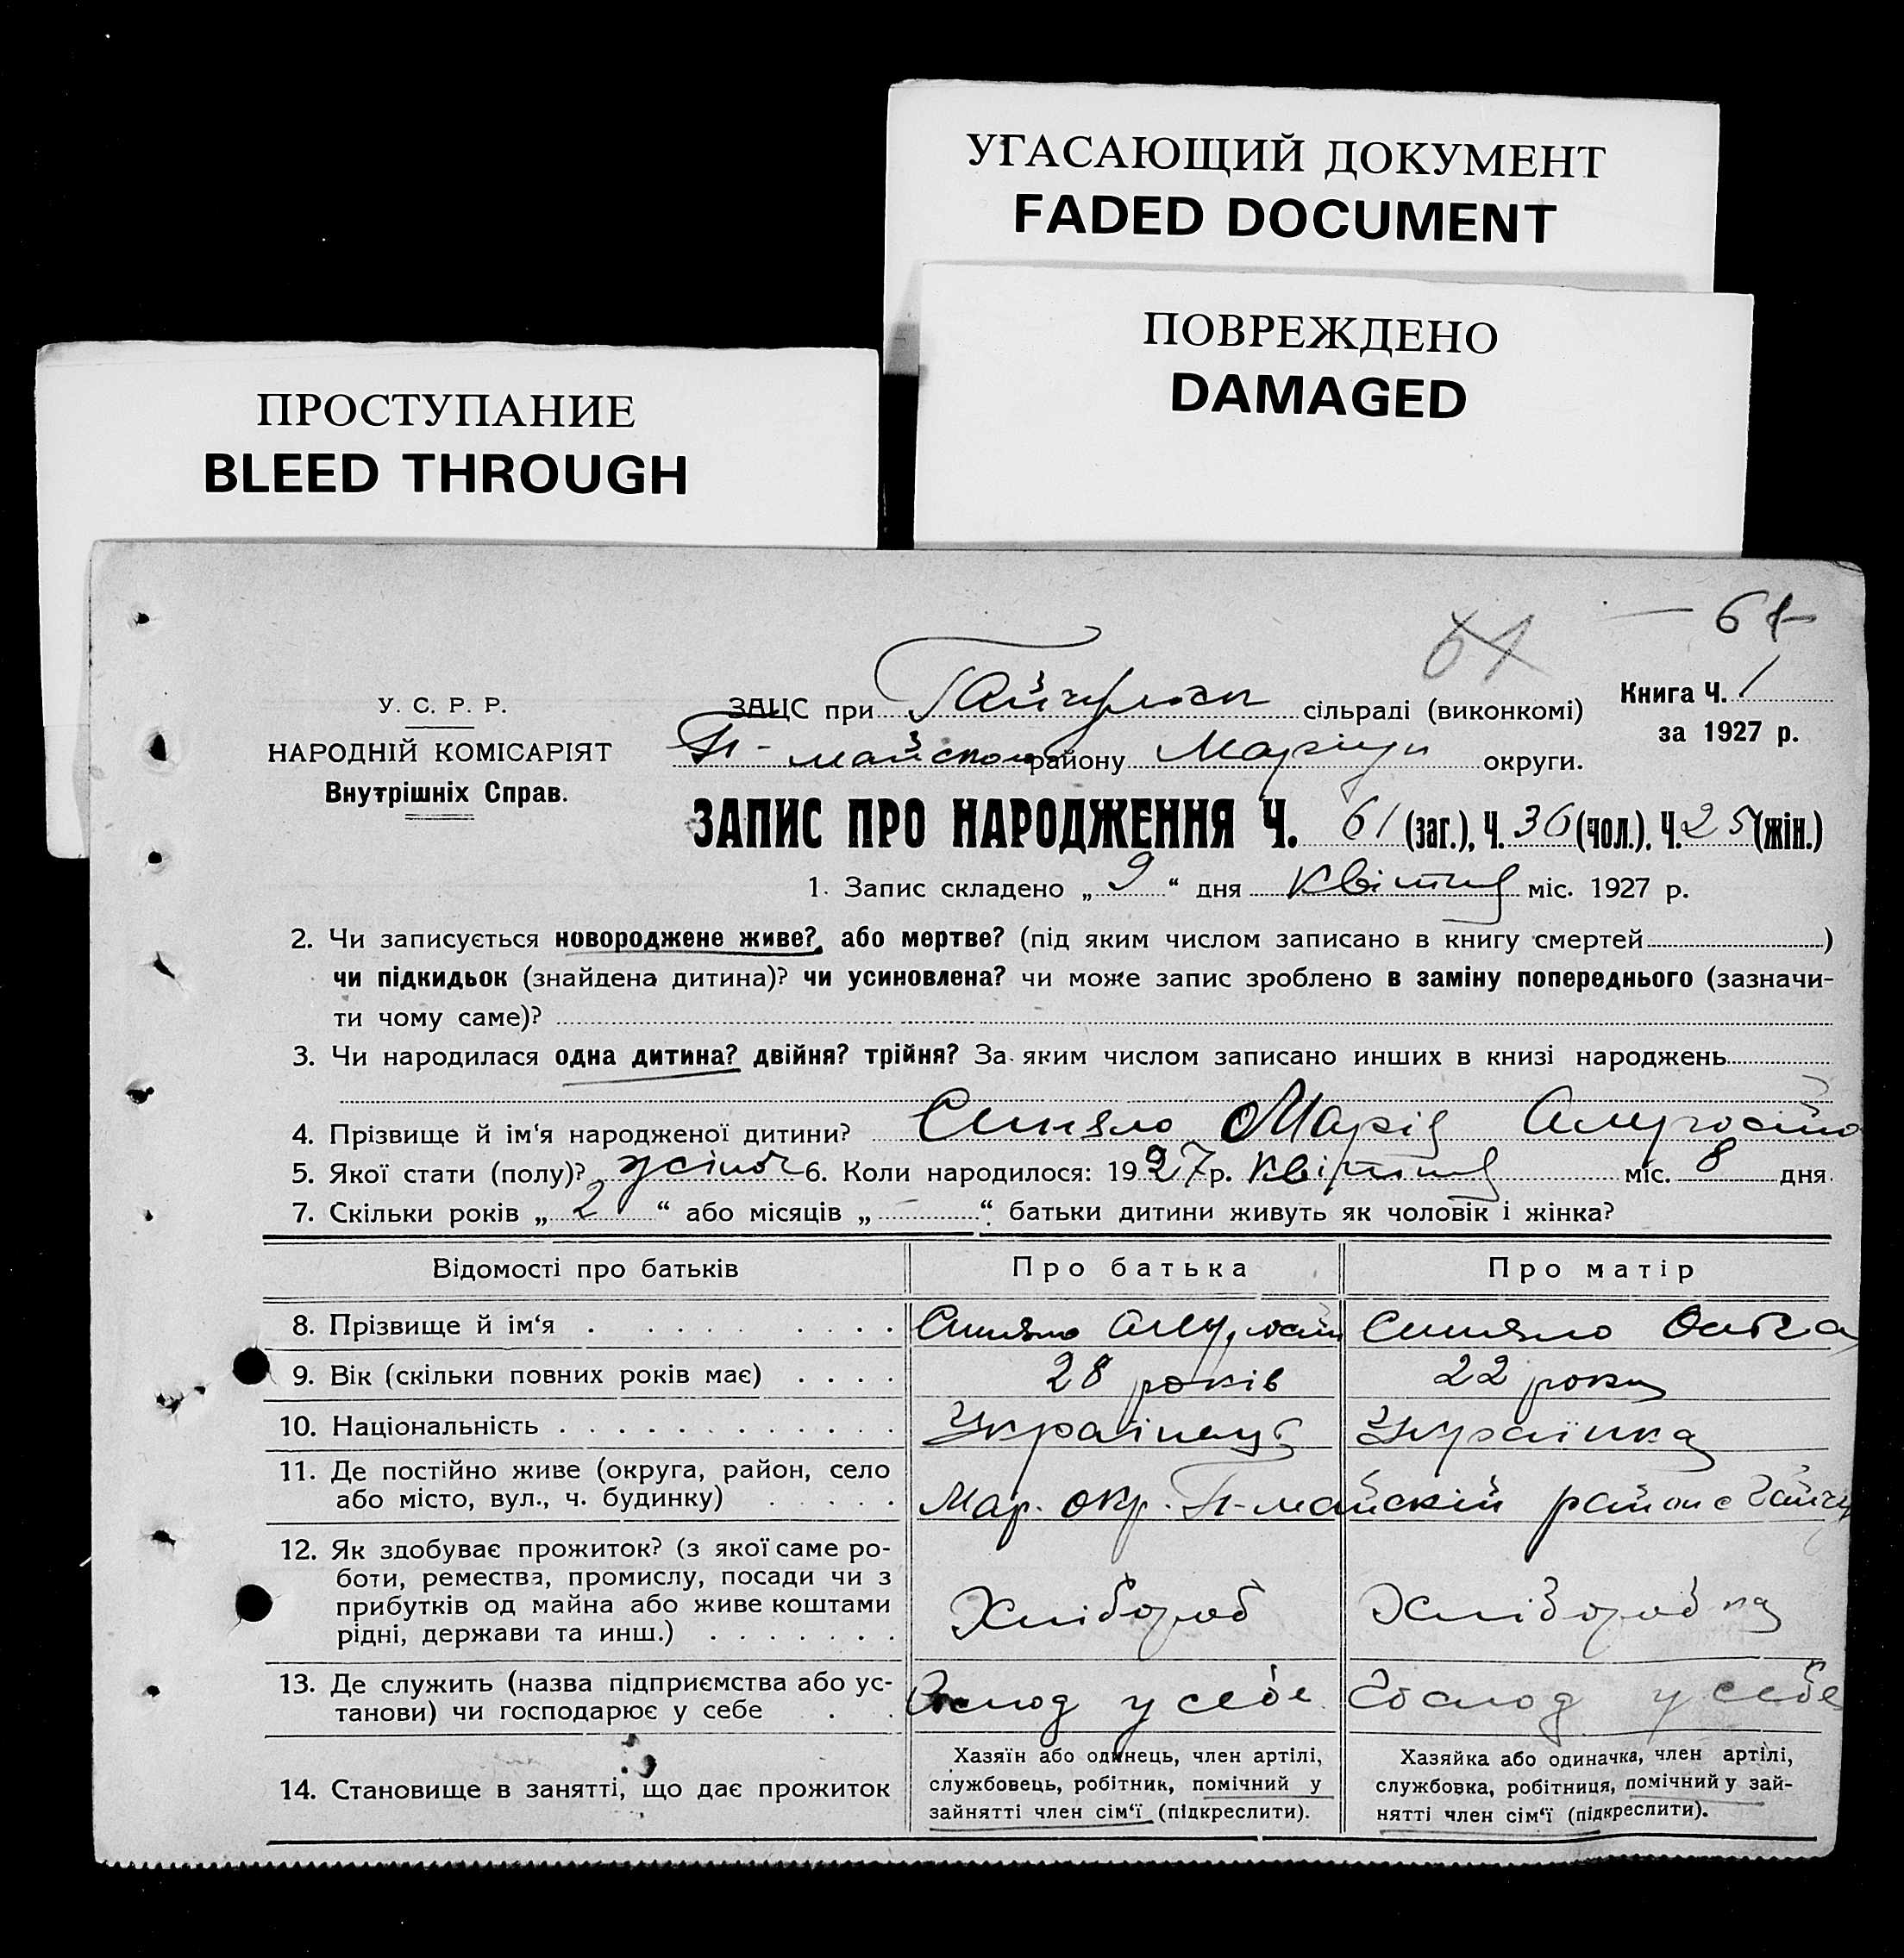 УГАСАЮЩИЙ ДОКУМЕНТ
FADED DOCUMENT
ПОВРЕЖДЕНО
DAMAGED
ПРОСТУПАНИЕ
BLEED THROUGH
61
У. С. Р. Р.
НАРОДНІЙ КОМІСАРІЯТ
Внутрішніх Справ.
ЗАЦС при сільраді (виконкомі)
Книга Ч. 1
за 1927 р.
П-майском району Маріуп округи.
ЗАПИС ПРО НАРОДЖЕННЯ Ч. 61 (заг.), Ч. 36 (чол.), Ч. 25 (жін.)
1. Запис складено „ 9 “ дня квітня міс. 1927 р.
2. Чи записується новороджене живе? або мертве? (під яким числом записано в книгу смертей)
чи підкидьок (знайдена дитина)? чи усиновлена? чи може запис зроблено в заміну попереднього (зазначи-
ти чому саме)?
3. Чи народилася одна дитина? двійня? трійня? За яким числом записано инших в книзі народжень
4. Прізвище й ім‘я народженої дитини? Синяло Марія
5. Якої стати (полу)? жіноч 6. Коли народилося: 1927 р. квітня міс. 8 дня.
7. Скільки років „ 2 “ або місяців „ – “ батьки дитини живуть як чоловік і жінка?
Відомості про батьків Про батька Про матір
8. Прізвище й ім‘я Синяло Синяло
9. Вік (скільки повних років має) 28 років 22 роки
10. Національність Українець Українка
11. Де постійно живе (округа, район, село
або місто, вул., ч. будинку) Мар. окр. П-майскій район с Гайчу
12. Як здобуває прожиток? (з якої саме ро-
боти, ремества, промислу, посади чи з
прибутків од майна або живе коштами
рідні, держави та инш.) Хлібороб Хліборобка
13. Де служить (назва підприємства або ус-
танови) чи господарює у себе Господ у себе Господ у себе
14. Становище в занятті, що дає прожиток
Хазяїн або одинець, член артілі,
службовець, робітник, помічний у
зайнятті член сім‘ї (підкреслити).
Хазяйка або одиначка, член артілі,
службовка, робітниця, помічний у зай-
нятті член сім‘ї (підкреслити).